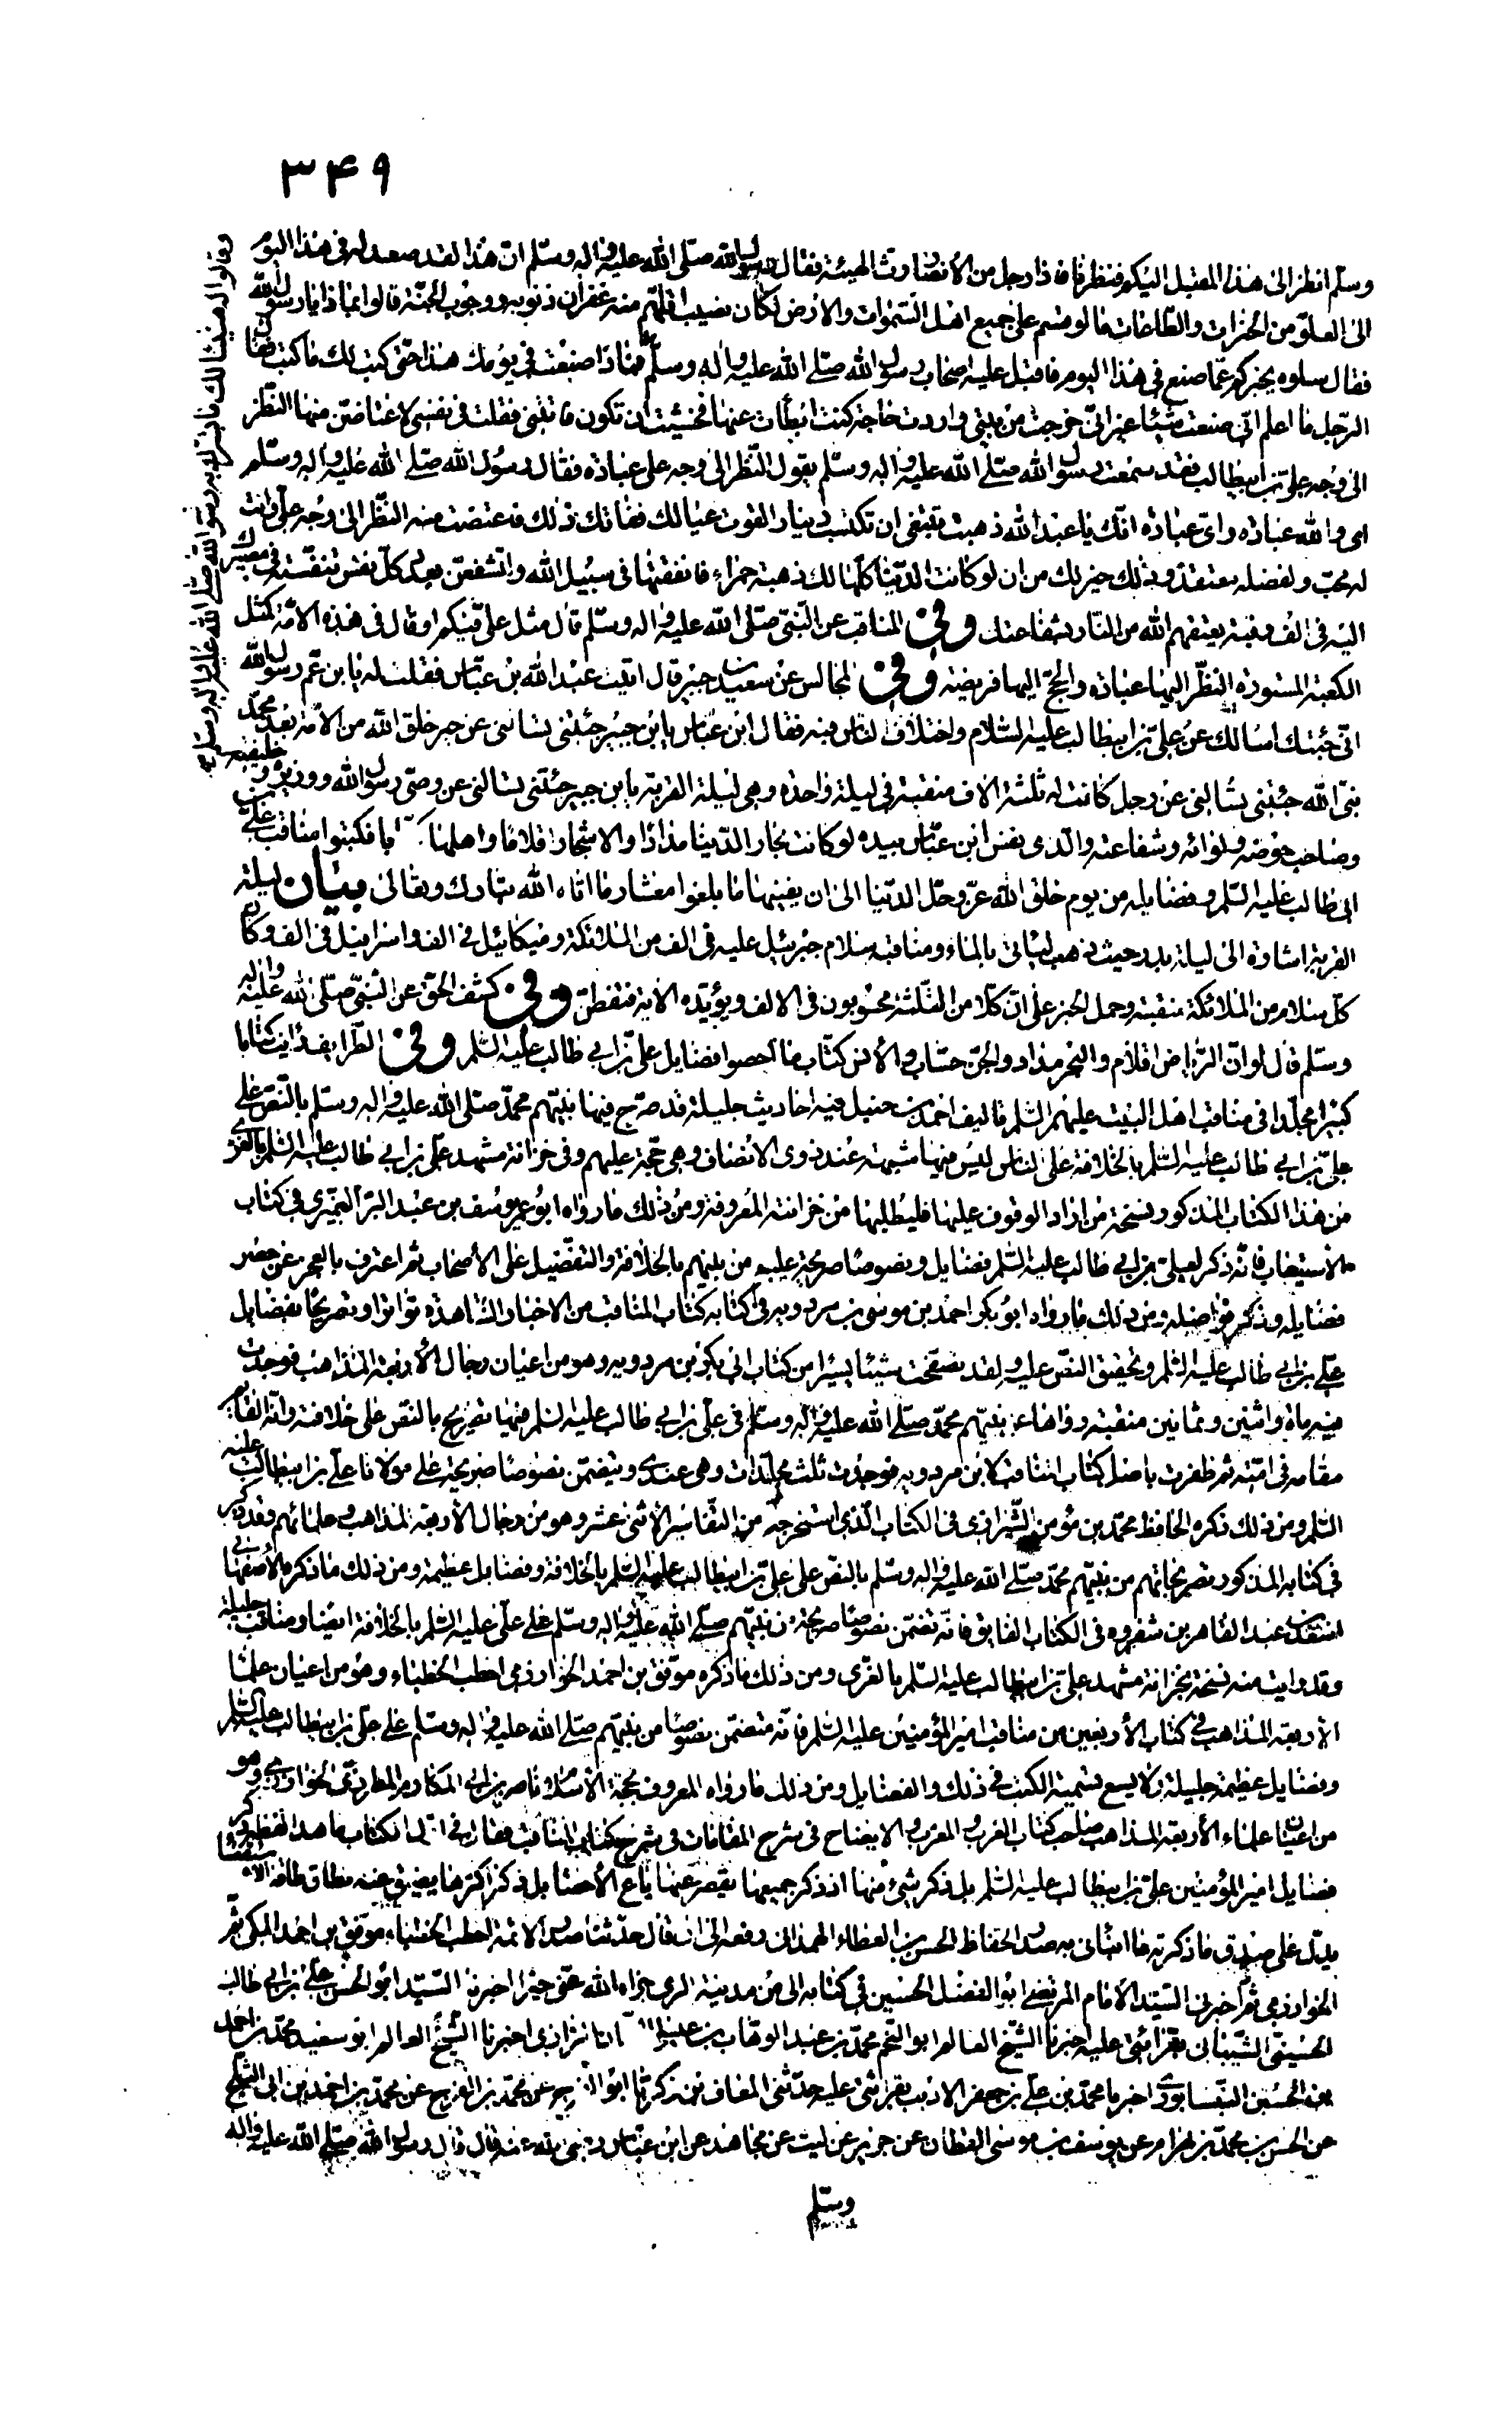 ۳۴۹
وسلّم انظر الى هذا المقبل اليكم فنظرنا فاذا رجل من الأنصار رث الهيئة فقال رسول الله صلّى الله عليه واله وسلّم انّ هذا لقد صعد له فى هذا اليوم
الى العلوّ من الخيرات والطّاعات ما لو قسم على جميع اهل السّموات والأرض لكان نصيب اقلّهم منه غفران ذنوبه ووجوب الجنّة قالوا بماذا يا رسول الله
فقال سلوه يخبركم عمّا صنع فى هذا اليوم فاقبل عليه اصحاب رسول الله صلّى الله عليه واله وسلّم فماذا صنعت فى يومك هذا حتّى كتب لك ما كتب فقال
الرّجل ما اعلم انّى صنعت شيئا غير انّى خرجت من بيتى واردت حاجة كنت ابطأت عنها فخشيت ان تكون فاتتنى فقلت فى نفسى لاعتاضنّ منها النّظر
الى وجه علىّ بن ابيطالب فقد سمعت رسول الله صلّى الله عليه واله وسلّم يقول النّظر الى وجه على عبادة فقال رسول الله صلّى الله عليه واله وسلّم
اى والله عبادة واىّ عبادة انّك يا عبد الله ذهبت تبتغى ان تكتسب دينارا لقوت عيالك ففاتك ذلك فاعتضت منه النّظر الى وجه علىّ وانت
له محبّ ولفضله معتقد وذلك خير لك من ان لو كانت الدّنيا كلّها لك ذهبة حمراء فانفقتها فى سبيل الله ولتشفعنّ بعدد كلّ نفس تنفّسته فى مصيرك
اليه فى الف رقبة يعتقهم الله من النّار بشفاعتك وفى المناقب عن النّبىّ صلّى الله عليه واله وسلّم قال مثل علىّ فيكم او قال فى هذه الامّة كمثل
الكعبة المستورة النّظر اليها عبادة والحجّ اليها فريضة وفى المجالس عن سعيد بن جبير قال اتيت عبد الله بن عبّاس فقلت له يا بن عمّ رسول الله
انّى جئتك اسألك عن علىّ بن ابيطالب عليه السّلام واختلاف النّاس فيه فقال ابن عبّاس يا بن جبير جئتنى تسألنى عن خير خلق الله من الأمّة بعد محمّد
نبىّ الله جئتنى تسألنى عن رجل كانت له ثلثة الاف منقبة فى ليلة واحدة وهى ليلة القربة يا بن جبير جئتنى تسألنى عن وصىّ رسول الله ووزيره وخليفته
وصاحب حوضه ولوائه وشفاعته والّذى نفس ابن عبّاس بيده لو كانت بحار الدّنيا مدادا والاشجار اقلاما واهلها كتّابا فكتبوا مناقب علىّ بن
ابى طالب عليه السّلم وفضايله من يوم خلق الله عزّ وجلّ الدّنيا الى ان يفنيها ما بلغوا معشار ما اتاه الله تبارك وتعالى بيان ليلة
القربة اشارة الى ليلة بدر حيث ذهب لياتى بالماء ومناقبه سلام جبرئيل عليه فى الف من الملائكة وميكائيل فى الف واسرافيل فى الف وكان
كلّ سلام من الملائكة منقبة وحمل الخبر على انّ كلّا من الثّلثة محسوبون فى الالف ويؤيّده الاية فتفطّن وفى كشف الحقّ عن النّبىّ صلّى الله عليه واله
وسلّم قال لو انّ الرّياض اقلام والبحر مداد والجنّ حسّاب والأنس كتّاب ما احصوا فضايل علىّ بن ابى طالب عليه السّلم وفى الطّرايف رايت كتابا
كبيرا مجلّدا فى مناقب اهل البيت عليهم السّلم تاليف احمد بن حنبل فيه احاديث جليلة قد صرّح فيها نبيّهم محمّد صلّى الله عليه واله وسلّم بالنّصّ على
علىّ بن ابى طالب عليه السّلم بالخلافة على النّاس ليس فيها شبهة عند ذوى الانصاف وهى حجّة عليهم وفى خزانة مشهد علىّ بن ابى طالب عليه السّلم بالغرى
من هذا الكتاب المذكور نسخة من اراد الوقوف عليها فليطلبها من خزانته المعروفة ومن ذلك ما رواه ابو عمر يوسف بن عبد البرّ النّميرى فى كتاب
الاستيعاب فانّه ذكر لعلى بن ابى طالب عليه السّلم فضايل ونصوصا صريحة عليه من نبيّهم بالخلافة والتفضيل على الأصحاب ثمّ اعترف بالعجز عن حصر
فضايله وذكر فواضله ومن ذلك ما رواه ابو بكر احمد بن موسى بن مردويه فى كتابه كتاب المناقب من الاخبار الشّاهدة تواترا وتصريحا بفضايل
علىّ بن ابى طالب عليه السّلم وتحقيق النصّ عليه ولقد تصفّحت شيئا يسيرا من كتاب ابى بكر بن مردويه وهو من اعيان رجال الأربعة المذاهب فوجدت
فيه ماة واثنين وثمانين منقبة رواها عن نبيّهم محمّد صلّى الله عليه واله وسلّم فى علىّ بن ابى طالب عليه السّلم فيها تصريح بالنصّ على خلافته وانّه القائم
مقامه فى امّته ثم ظفرت باصل كتاب المناقب لابن مردويه فوجدت ثلث مجلّدات وهى عندى ويتضمّن نصوصا صريحة على مولانا علىّ بن ابيطالب عليه
السّلم ومن ذلك ذكره الحافظ محمّد بن مؤمن الشّيرازى فى الكتاب الّذى استخرجه من التّفاسير الأثنى عشر وهو من رجال الأربعة المذاهب وعلمائهم وقد ذكر
فى كتابه المذكور تصريحاتهم من نبيّهم محمّد صلّى الله عليه واله وسلّم بالنصّ على علىّ بن ابيطالب عليه السّلم بالخلافة وفضايل عظيمة ومن ذلك ما ذكره الاصفهانى
اسعد بن عبد القاهر بن شفروه فى الكتاب الفايق فانّه تضمّن نصوصا صريحة من نبيّهم صلّى الله عليه واله وسلّم على علىّ عليه السّلم بالخلافة ايضا ومناقب جليلة
وقد رايت منه نسخة بخزانة مشهد علىّ بن ابيطالب عليه السّلم بالغرى ومن ذلك ما ذكره موفّق بن احمد الخوارزمى اخطب الخطباء وهو من اعيان علماء
الأربعة المذاهب فى كتاب الأربعين من مناقب امير المؤمنين عليه السّلم فانّه متضمّن نصوصا من نبيّهم صلّى الله عليه واله وسلّم على علىّ بن ابيطالب عليه السّلم
وفضايل عظيمة جليلة ولا يسع تسمية الكتب فى ذلك والفضايل ومن ذلك ما رواه المعروف بحجّة الاسلام ناصر بن ابى المكارم المطرزى الخوارزمى وهو
من اعيان علماء الأربعة المذاهب صاحب كتاب الغرب والمعرب والايضاح فى شرح المقامات فى شرح كتاب المناقب فقال فى اوّل الكتاب ما هذا لفظه ذكر
فضايل امير المؤمنين علىّ بن ابيطالب عليه السّلم بل ذكر شىء منها اذ ذكر جميعها يقصر عنها باع الأحصاء بل ذكر اكثرها يضيق عنه نطاق طاقة الاستقصاء
يدلّ على صدق ما ذكرته ما انبانى به صدر الحفّاظ الحسن بن العطاء الهمدانى رفعه الى ان قال حدّثنا صدر الائمّة اخطب الخطباء موفّق بن احمد المكى ثمّ
الخوارزمى ثمّ اخبرنى السّيّد الأمام المرتضى ابو الفضل الحسين فى كتابه الى من مدينة الرى جزاه الله عنّى خيرا اخبرنا السّيّد ابو الحسن على بن ابى طالب
الحسينىّ الشّيبانى بقراءتى عليه اخبرنا الشّيخ العالم ابو النّجم محمّد بن عبد الوهّاب بن عيسى الرازى اخبرنا الشّيخ العالم ابو سعيد محمّد بن احمد
بن الحسين النيّسابورى اخبرنا محمّد بن علىّ بن جعفر الاديب بقراءتى عليه حدّثنى المعافى بن زكريّا ابو الفرج عن محمّد بن احمد بن ابى الثّلج
عن الحسن بن محمّد بن بهرام عن يوسف بن موسى القطّان عن جرير عن ليث عن مجاهد عن ابن عبّاس رضى الله عنه قال قال رسول الله صلّى الله عليه واله
وسلّم
وقالوا له هنيئا لك ما بشّرك به رسول الله صلّى الله عليه واله وسلّم